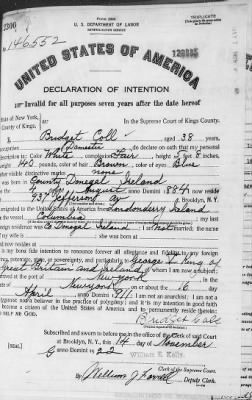 U. S. DEPARTMENT OF LABOR
NATURALIZATION SERVICE
TRIPLICATE
No. 146552
UNITED STATES OF AMERICA
DECLARATION OF INTENTION
Invalid for all purposes seven years after the date hereof
State of New York,
County of Kings,
In the Supreme Court of Kings County.
I, Bridget Coll, aged 38 years,
occupation Domestic, do declare on oath that my personal
description is: Color White, complexion Fair, height 5 feet 8 inches,
weight 145 pounds, color of hair Brown, color of eyes Blue
other visible distinctive marks none
County Donegal Ireland
on the 4 day of August, anno Domini 1884; I now reside
at 937 Jefferson Av, Brooklyn, N.Y.
I emigrated to the United States of America from Londonderry Ireland
Columbia
foreign residence was Co Donegal Ireland; I am not married; the name
of my wife is; she was born at
and now resides at
It is my bona fide intention to renounce forever all allegiance and fidelity to any foreign
prince, potentate, state, or sovereignty, and particularly to George V King of
Great Britain and Ireland, of whom I am now a subject;
I arrived at the port of New York, in the
State of New York, on or about the 16 day
of April, anno Domini 1911; I am not an anarchist; I am not a
polygamist nor a believer in the practice of polygamy; and it is my intention in good faith
to become a citizen of the United States of America and to permanently reside therein:
SO HELP ME GOD.
Bridget Coll
Subscribed and sworn to before me in the office of the Clerk of said Court
at Brooklyn, N.Y., this 14 day of November
anno Domini 1922
William E. Kelly
Clerk of the Supreme Court.
By William J.
Deputy Clerk.